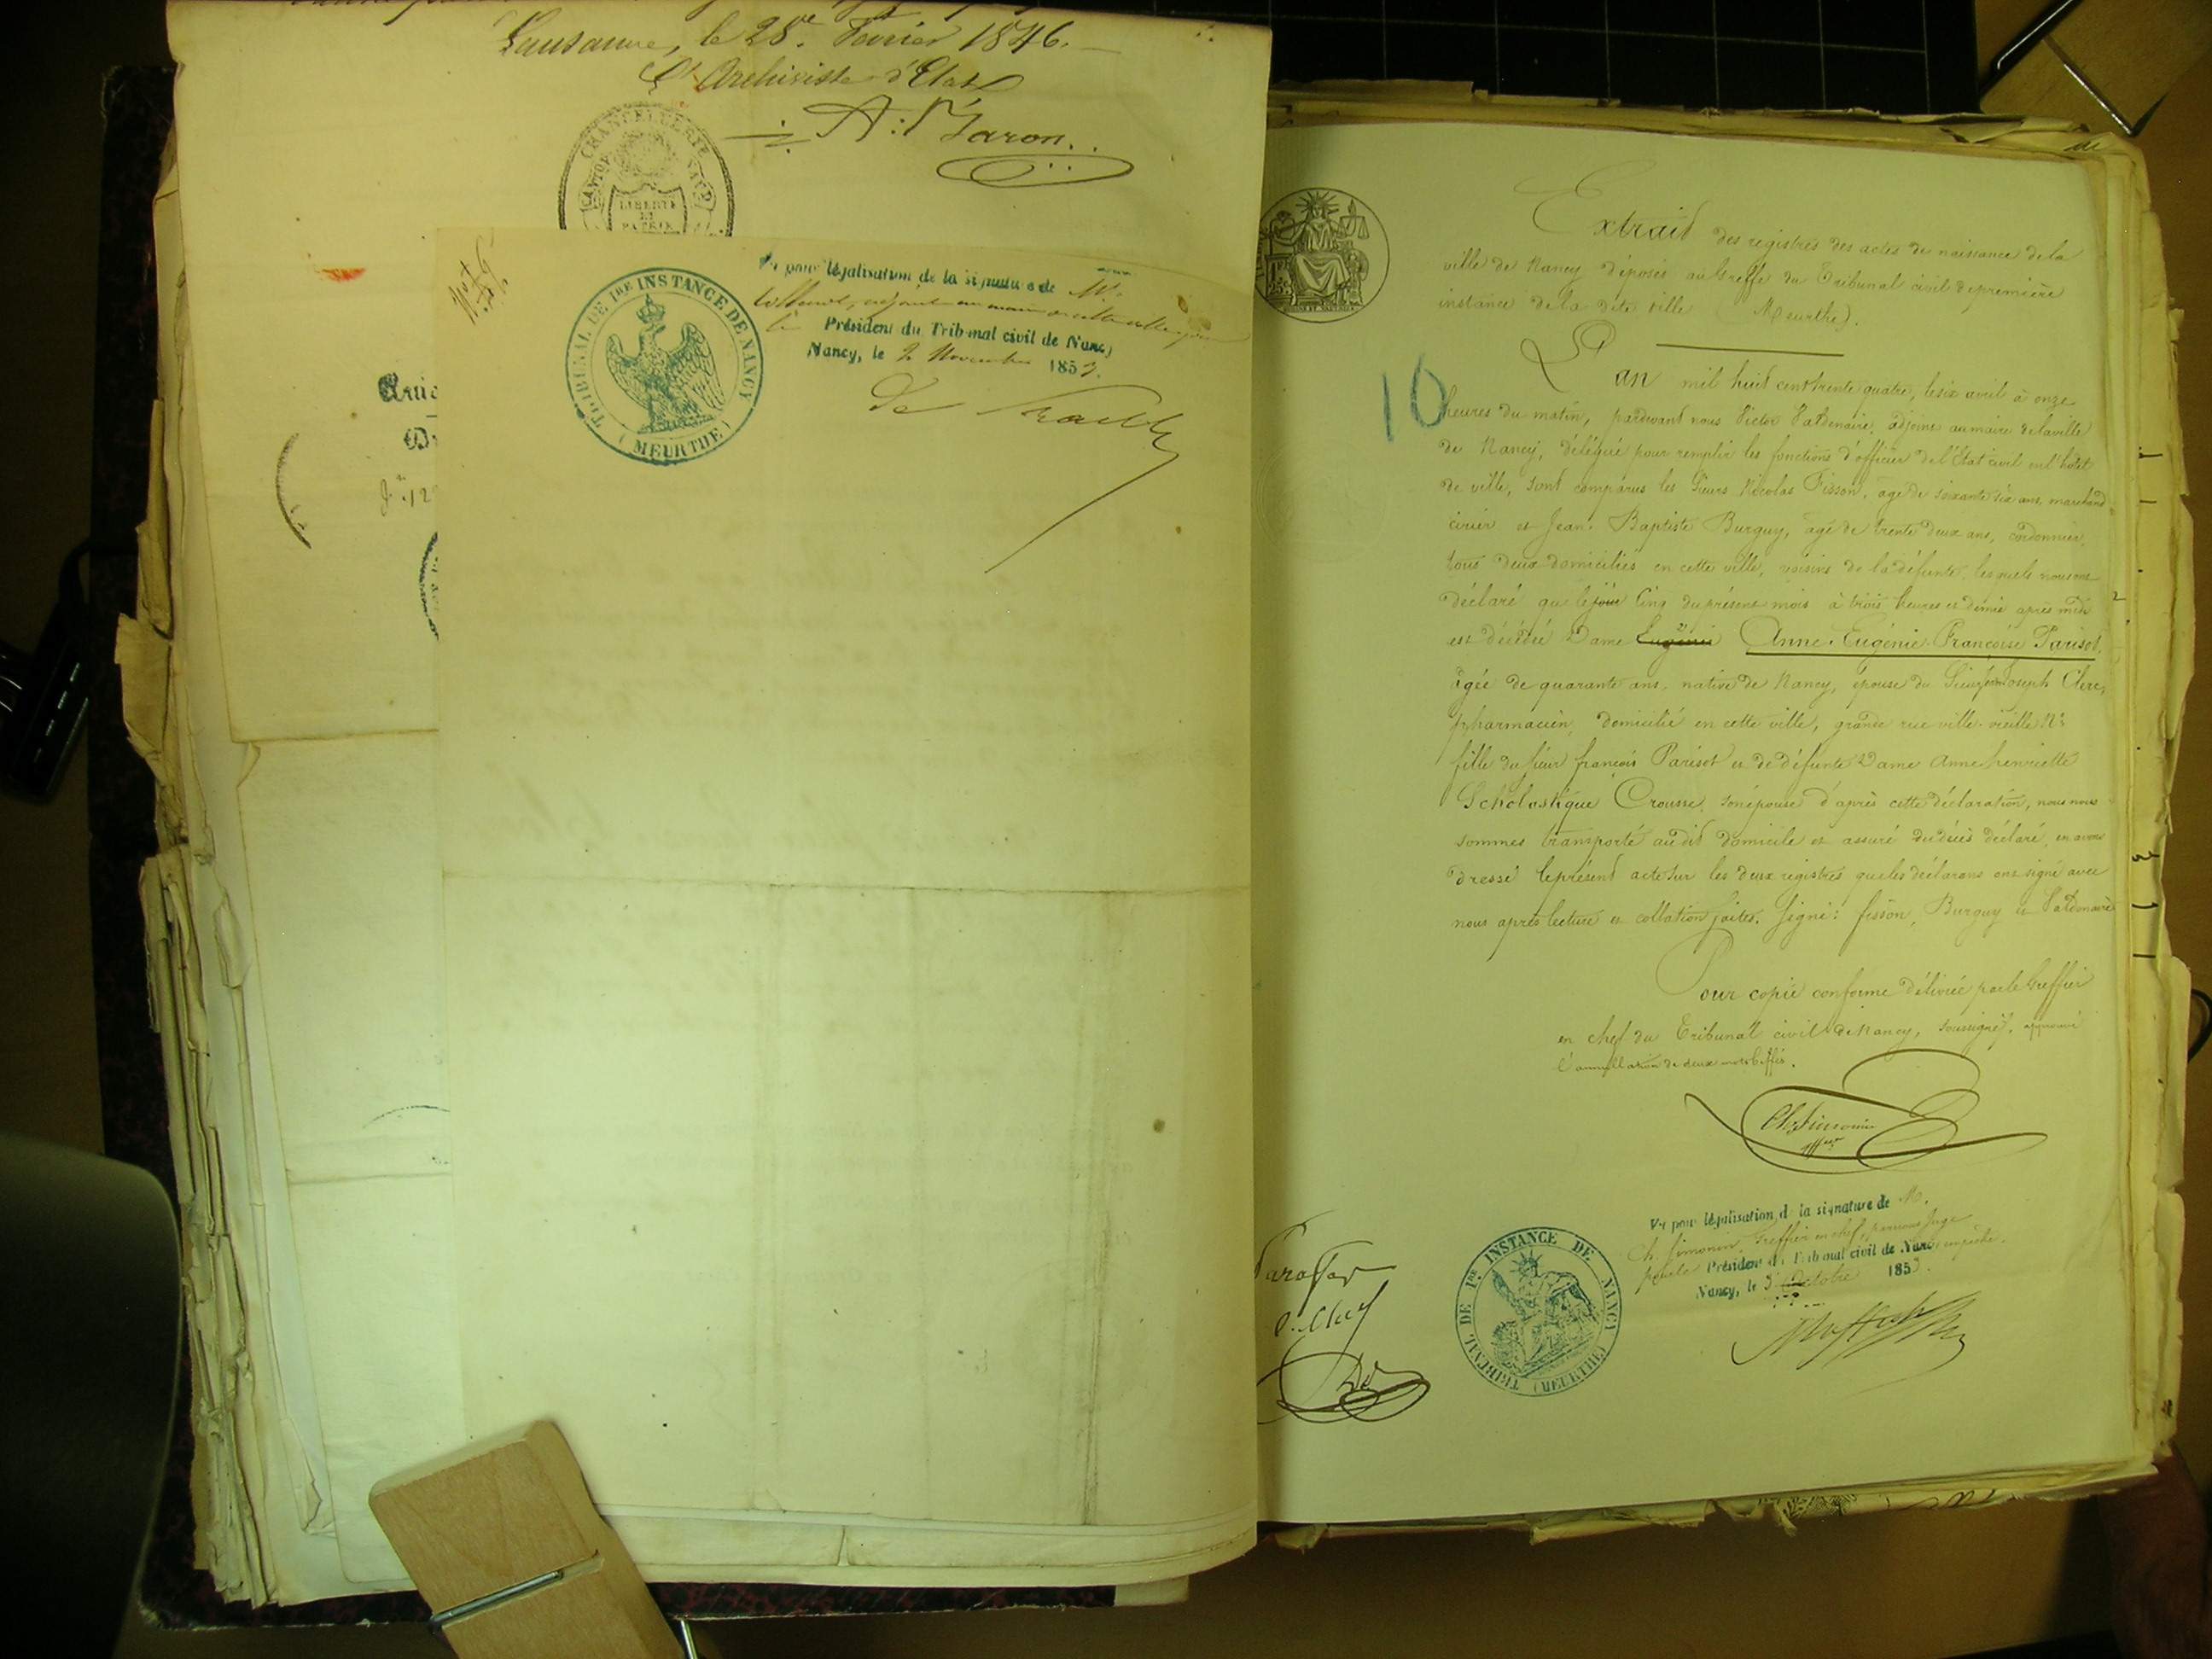 Lausanne, le 28.e Février 1846.
L'Archiviste d'Etat
A: Baron.
CHANCELLERIE
CANTON VAUD
LIBERTE
ET
PATRIE
Vu pour légalisation de la signature de Mr.
adjoint au maire de cette ville
le Président du Tribunal civil de Nancy
Nancy, le 2 Novembre 1853.
TRIBUNAL DE 1RE INSTANCE DE NANCY
( MEURTHE )
Extrait des registres des actes de naissance de la
ville de Nancy déposés au Greffe du Tribunal civil de première
instance de la dite ville (Meurthe).
10
L'an mil huit cent trente quatre, le six avril à onze
heures du matin, pardevant nous Victor Patdenaire, adjoint au maire de la ville
de Nancy, délégué pour remplir les fonctions d'officier de l'Etat civil en l'hôtel
de ville, sont comparus les Sieurs Nicolas Fisson, agé de soixante six ans, marchand
cirier et Jean-Baptiste Burguy, agé de trente deux ans, cordonnier,
tous deux domiciliés en cette ville, voisins de la défunte, lesquels nous ont
déclaré que le jour cinq du présent mois à trois heures et demie après midi
est décédée Dame Eugénie Anne-Eugénie-Françoise Parisot,
agée de quarante ans, native de Nancy, épouse du Sieur Jean Joseph Clerc,
pharmacien, domicilié en cette ville, grande rue ville-vieille No
fille du sieur françois Parisot et de défunte Dame Anne henriette
Scholastique Crousse, son épouse d'après cette déclaration, nous nous
sommes transporté au dit domicile et assuré du décès déclaré, en avons
dressé le présent acte sur les deux registres que les déclarans ont signé avec
nous après lecture et collation faites. Signé: fisson, Burguy et Patdenaire
Pour copie conforme délivrée par le Greffier
en chef du Tribunal civil de Nancy, soussigné, approuvé
l'annullation de deux mots biffés.
Ch. Simonin
Vu pour légalisation de la signature de M.
Ch. Simonin, Greffier en chef, par nous Juge
pour le Président du Tribunal civil de Nancy empêché.
Nancy, le 3 Octobre 1853.
TRIBUNAL DE 1RE INSTANCE DE NANCY (MEURTHE)